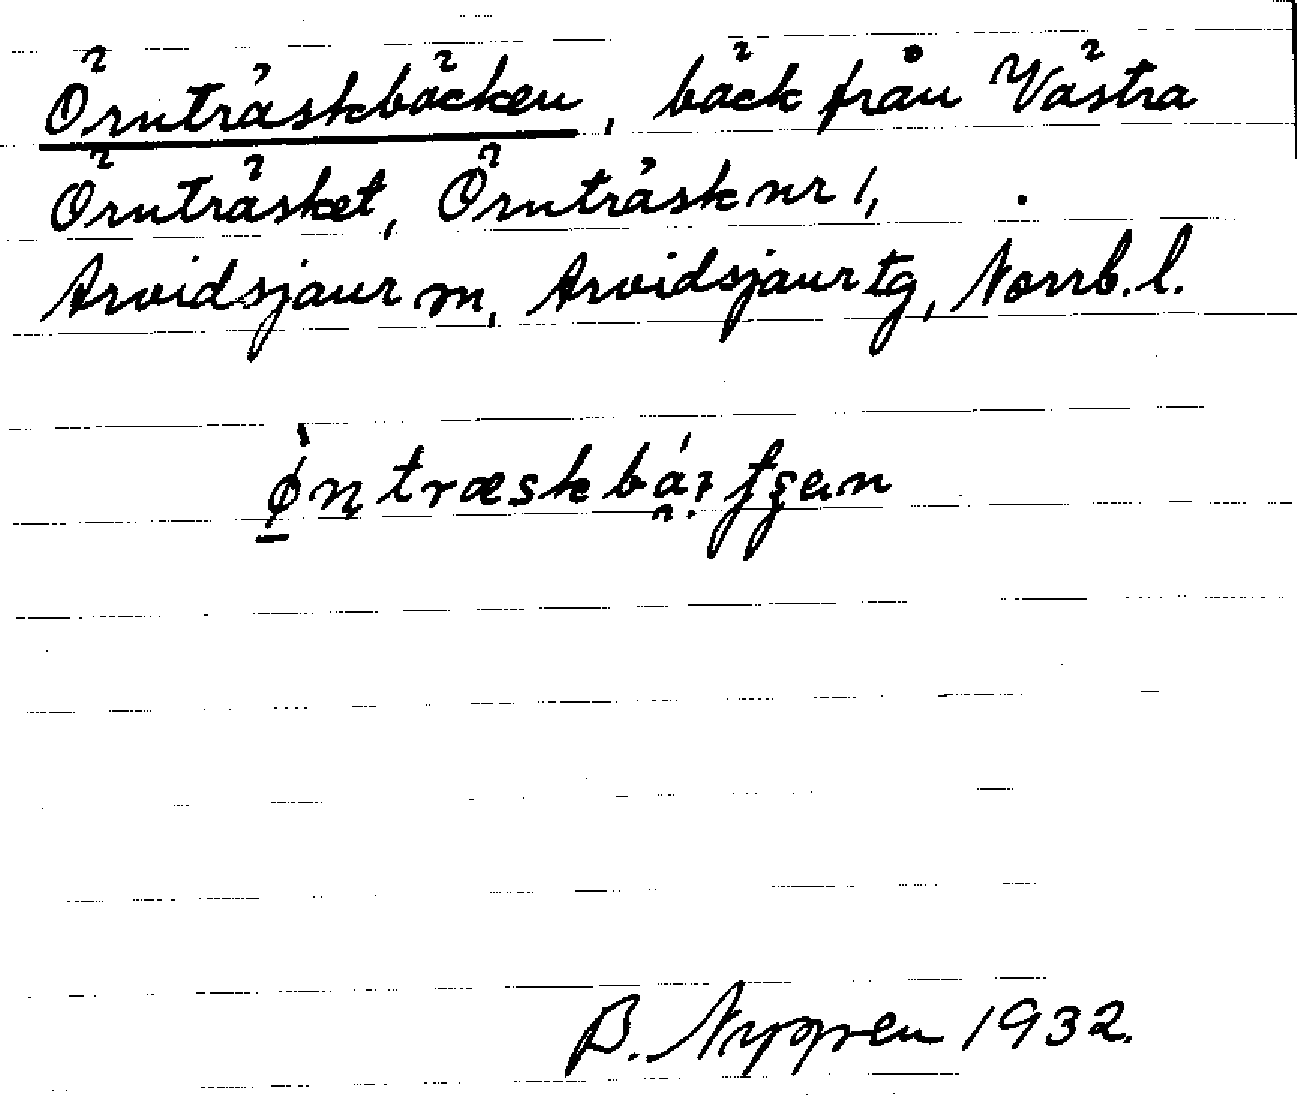 Örnträskbäcken, bäck från Västra
Örnträsket, Örnträsk nr 1,
Arvidsjaur sn, Arvidsjaur tg, Norrb. l.
B. Nygren 1932.